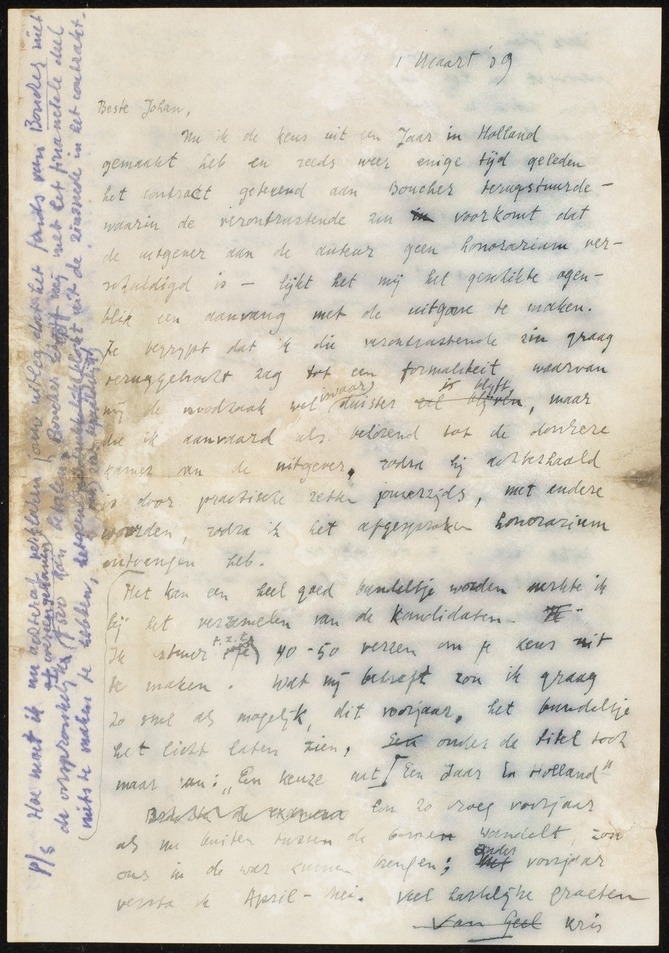 1 Maart '09
Beste Johan,
Nu ik de keus uit een Jaar in Holland
gemaakt heb en reeds weer enige tijd geleden
het contract getekend aan Boucher terugstuurde –
waarin de verontrustende zin voorkomt dat
de uitgever aan de auteur geen honorarium ver-
schuldigd is – lijkt het mij het geschikte ogen-
blik een aanvang met de uitgave te maken.
Je begrijpt dat ik die verontrustende zin graag
teruggebracht zag tot een formaliteit waarvan
mij de noodzaak wel duister is blijft, maar
die ik aanvaard als behorend tot de donkere
kamer van de uitgever, zodra hij achterhaald
is door practische zetten jouwerzijds, met andere
woorden, zodra ik het afgesproken honorarium
ontvangen heb.
Het kan een heel goed bundeltje worden merkte ik
bij het verzamelen van de kandidaten.
Ik stuur je p.z.t. 40-50 verzen om je keus uit
te maken. Wat mij betreft zou ik graag
zo snel als mogelijk, dit voorjaar, het bundeltje
het licht laten zien, onder de titel toch
maar van: "Een keuze uit Een Jaar In Holland"
Een zo vroeg voorjaar
als nu buiten tussen de bomen wandelt, zou
ons in de war kunnen brengen; onder voorjaar
versta ik April - Mei. Veel hartelijke groeten
Van Geel Kris
P/S Hoe moet ik nu achteraf verklaren jouw uitleg dat het fonds van Boucher niet
de oorspronkelijke f 500 kan betalen. Boucher zegt mij met het financiële deel
niets te maken te hebben, hetgeen blijkt uit de zinsnede in het contract.